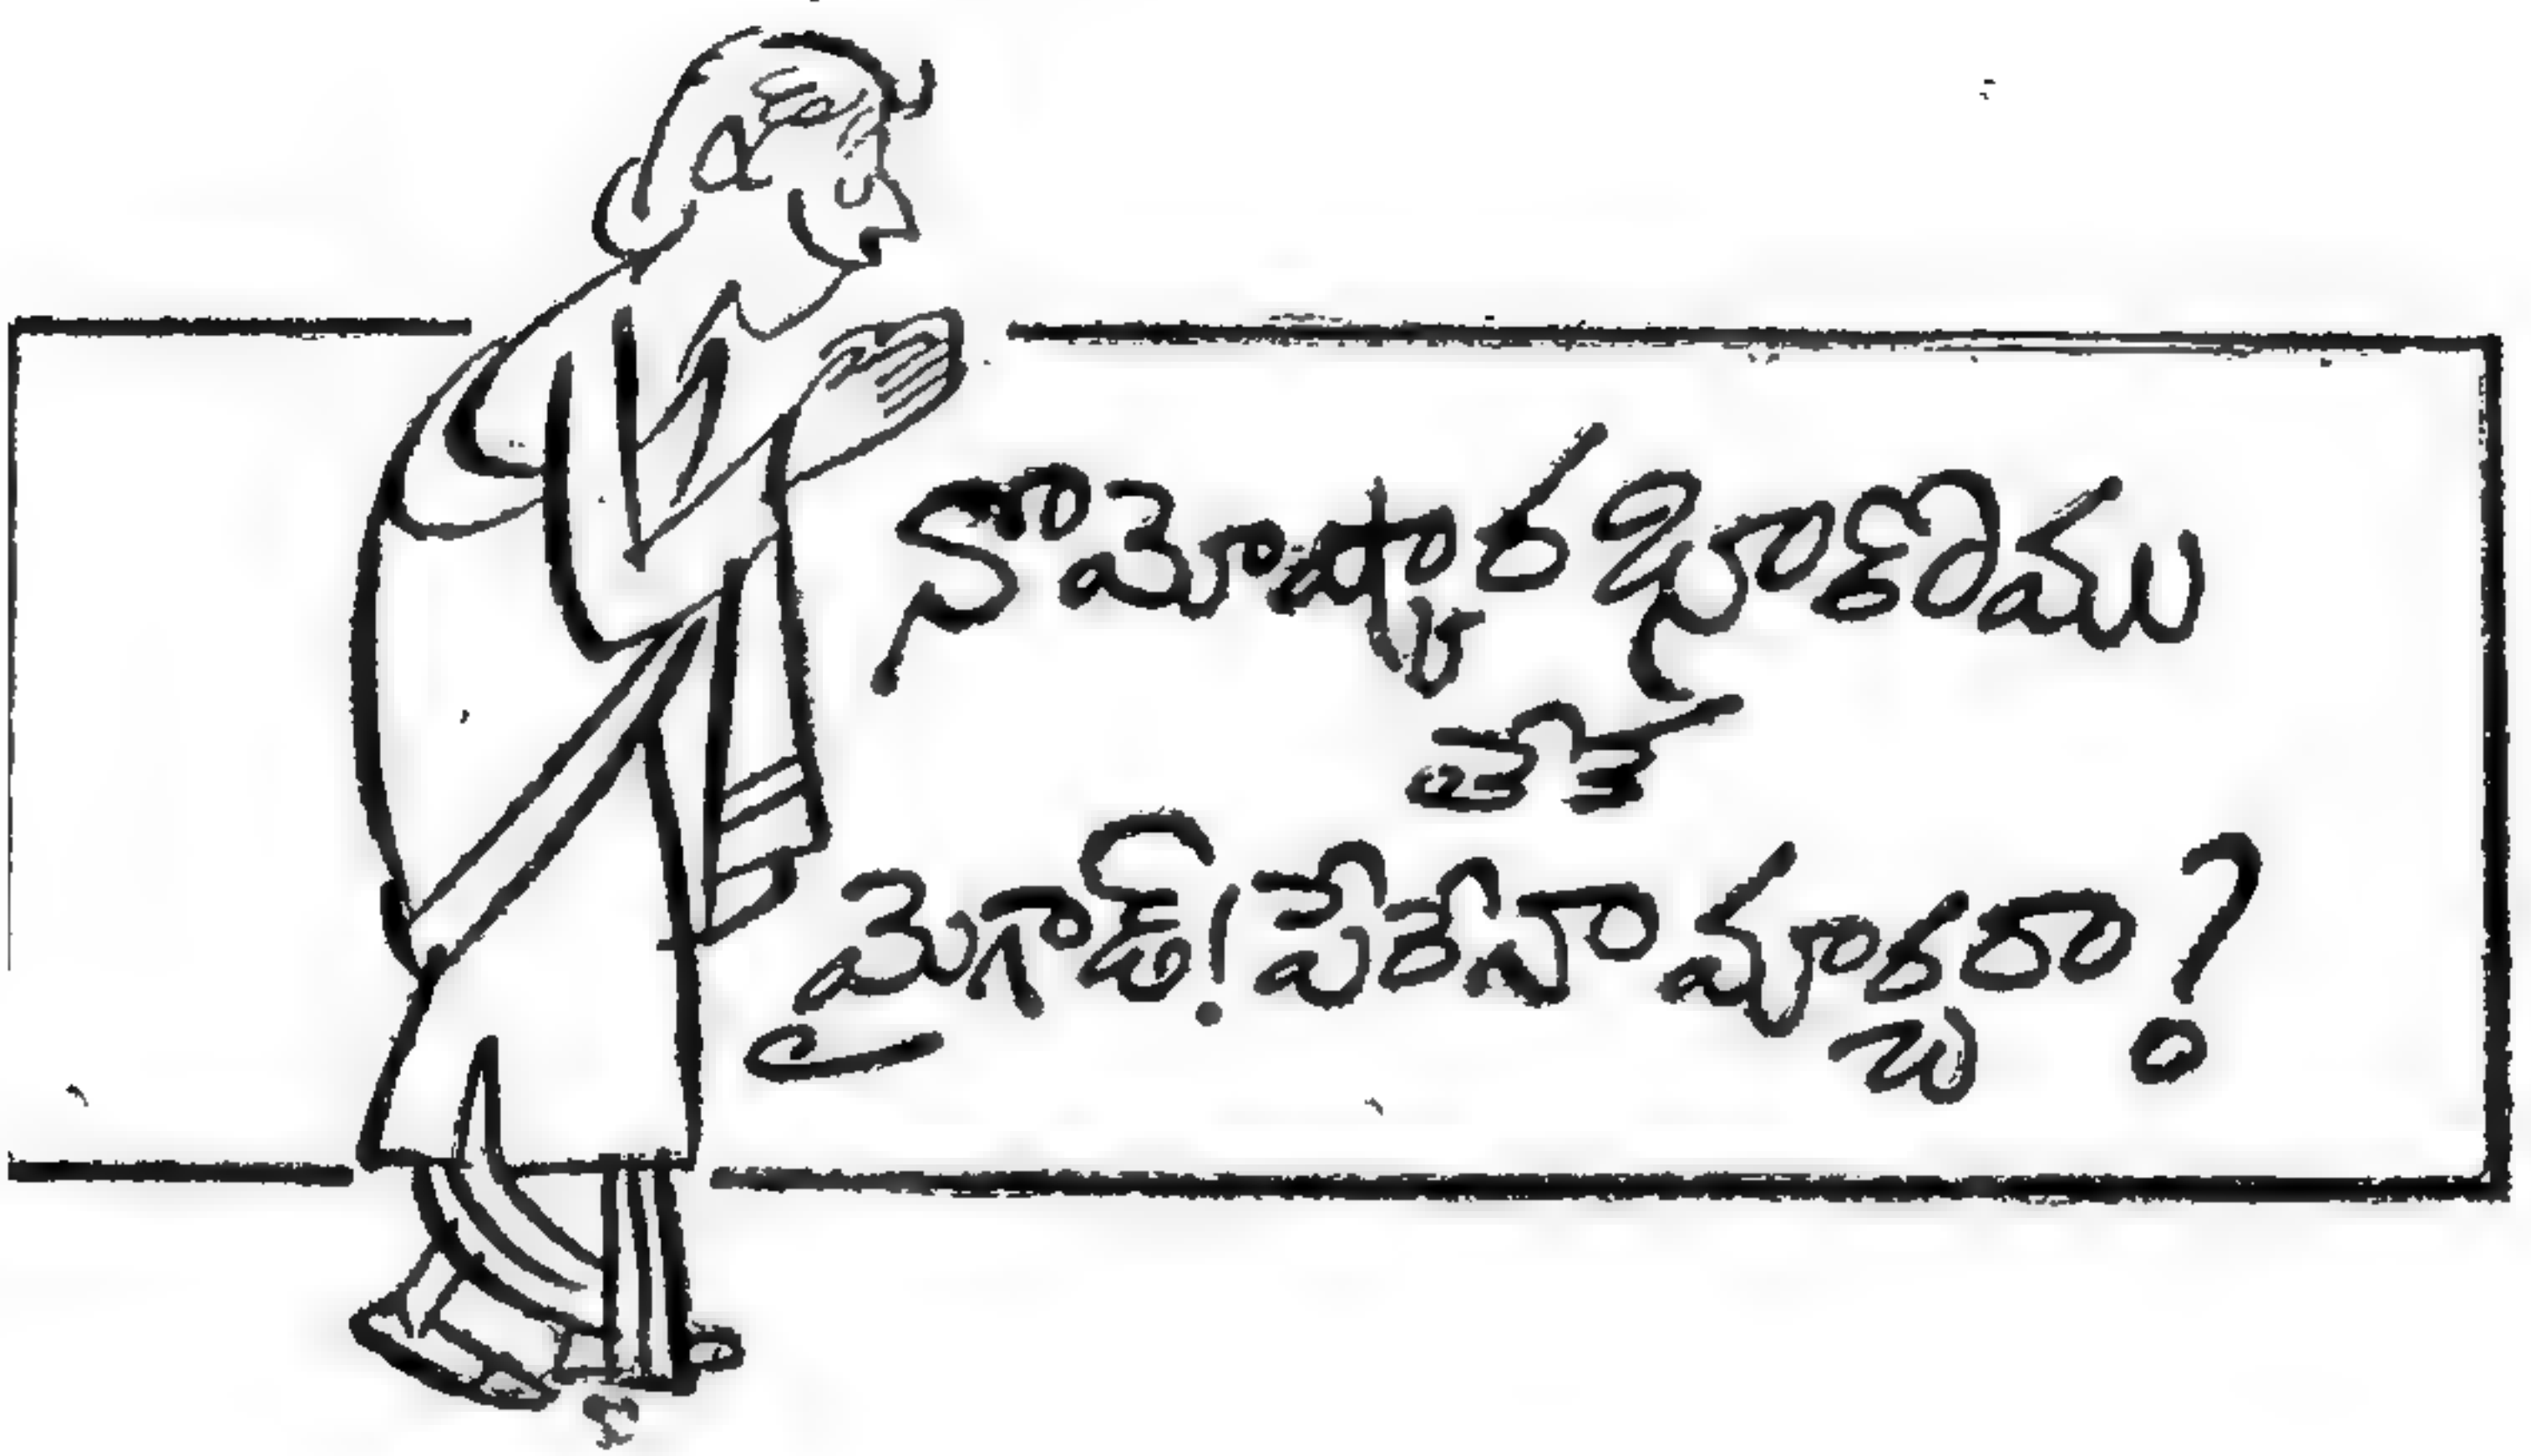 నొమోష్కార
లేక
మైగాడ్! పేరేనా మార్చరా?